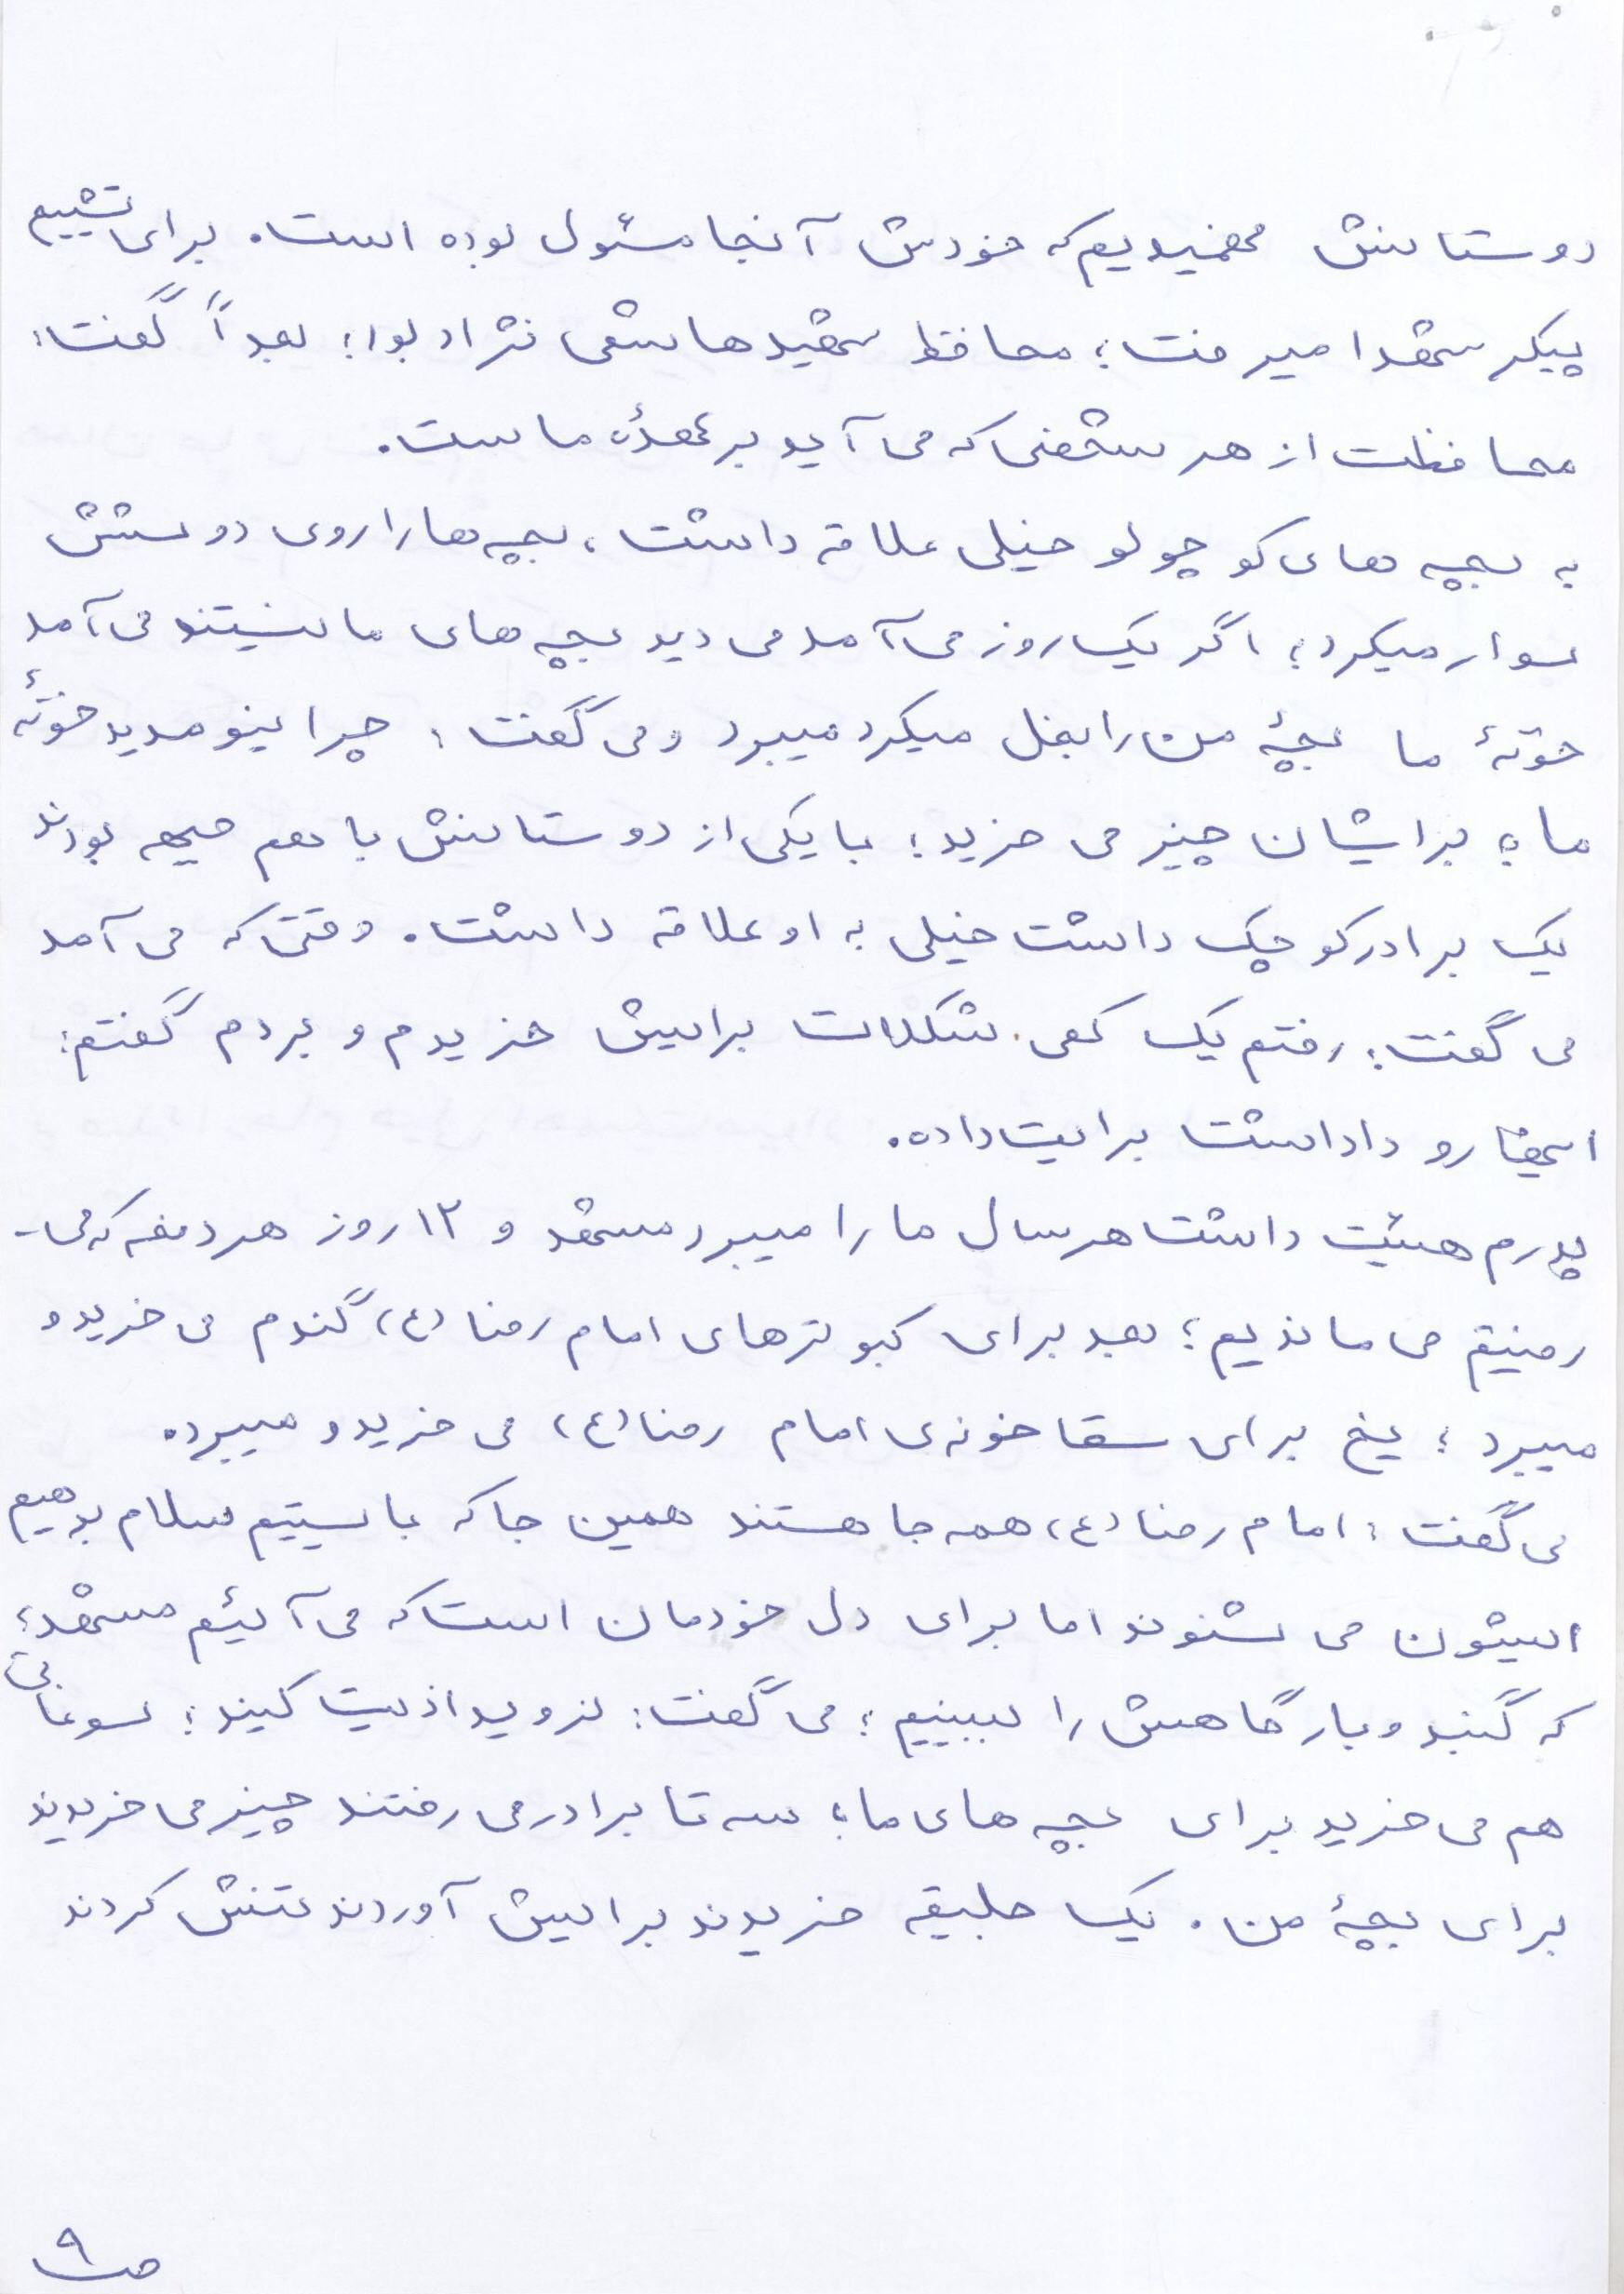 دوستانش فهمیدیم که خودش آنجا مسئول بوده است. برای تشییع
پیکر شهدا میرفت؛ محافظ شهید هاشمی نژاد بود؛ بعداً گفت:
محافظت از هر شخصی که می آید بر عهدۀ ماست.
به بچه های کوچولو خیلی علاقه داشت، بچه ها را روی دوشش
سوار میکرد؛ اگر یک روز می آمد می دید بچه های ما نیستند می آمد
خونۀ ما بچۀ من را بغل میکرد میبرد و می گفت: چرا اینو مدید خونۀ
ما؛ برایشان چیز می خرید؛ با یکی از دوستانش با هم جبهه بودند
یک برادر کوچک داشت خیلی به او علاقه داشت. وقتی که می آمد
می گفت: رفتم یک کمی شکلات برایش خریدم و بردم گفتم:
اینها رو داداشت برایت داده.
پدرم هیئت داشت هر سال ما را میبرد مشهد و ۱۲ روز هر دفعه که می-
رفتیم می ماندیم؛ بعد برای کبوترهای امام رضا (ع) گندم می خرید و
میبرد؛ یخ برای سقاخونه ی امام رضا (ع) می خرید و میبرد.
می گفت: امام رضا (ع) همه جا هستند همین جا که بایستیم سلام بدهیم
ایشون می شنوند اما برای دل خودمان است که می آئیم مشهد؛
که گنبد و بارگاهش را ببینیم؛ می گفت: نروید اذیت کنید؛ سوغاتی
هم می خرید برای بچه های ما؛ سه تا برادر می رفتند چیز می خریدند
برای بچۀ من. یک جلیقه خریدند برایش آوردند تنش کردند
ص ۹